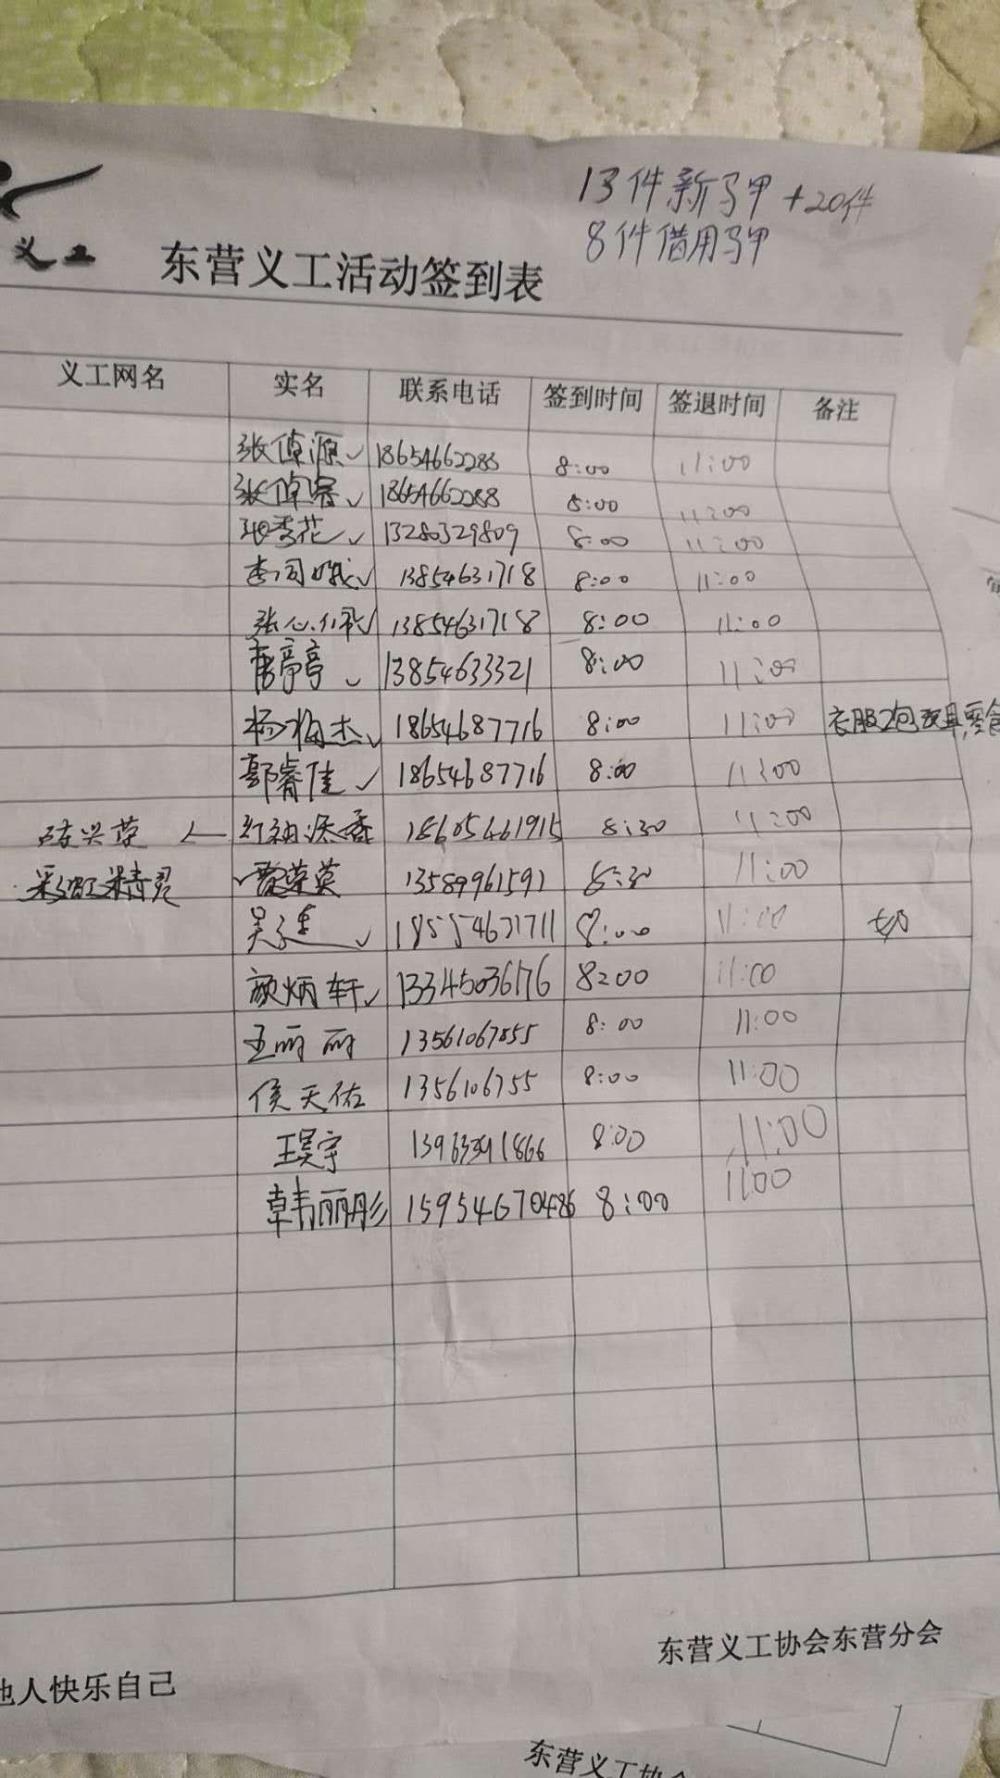 13件新马甲+20件
8件借用马甲
义工
东营义工活动签到表
义工网名 实名 联系电话 签到时间 签退时间 备注
张倬源 18654662288 8:00 11:00
张倬睿 18654662288 8:00 11:00
张秀花 13280329809 8:00 11:00
13854631718 8:00 11:00
13854631718 8:00 11:00
曹亭亭 13854633321 8:00 11:00
杨梅杰 18654687716 8:00 11:00 衣服2包玩具,零食
郭睿佳 18654687716 8:00 11:00
陈兴荣 红袖添香 18605461915 8:30 11:00
彩虹精灵 13589961591 8:30 11:00
18554621711 8:00 11:00
颜炳轩 13345036176 8:00 11:00
王丽丽 13561067855 8:00 11:00
侯天佑 1356106755 8:00 11:00
王昊宇 8:00 11:00
韩丽彤 15954670486 8:00 11:00
东营义工协会东营分会
他人快乐自己
东营义工协会